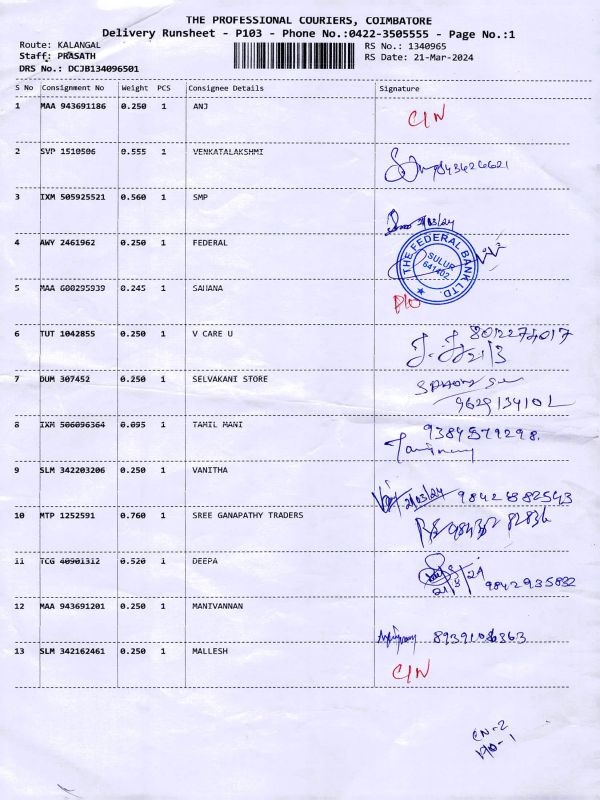 THE PROFESSIONAL COURIERS, COIMBATORE
Delivery Runsheet - P103 - Phone No.:0422-3505555 - Page No.:1
Route: KALANGAL
RS No.: 1340965
Staff: PRASATH
RS Date: 21-Mar-2024
DRS No.: DCJB134096501
S No Consignment No Weight PCS Consignee Details Signature
1 MAA 943691186 0.250 1 ANJ
C/N
2 SVP 1510506 0.555 1 VENKATALAKSHMI
3 IXM 505925521 0.560 1 SMP
4 AWY 2461962 0.250 1 FEDERAL
THE FEDERAL BANK LTD.
SULUR
641402
5 MAA G00295939 0.245 1 SAHANA
P/O
6 TUT 1042855 0.250 1 V CARE U
21/3
7 DUM 307452 0.250 1 SELVAKANI STORE
9629134102
8 IXM 506096364 0.095 1 TAMIL MANI
9384579298.
9 SLM 342203206 0.250 1 VANITHA
21/03/24 9842682543
10 MTP 1252591 0.760 1 SREE GANAPATHY TRADERS
11 TCG 40901312 0.520 1 DEEPA
21/3/24 9842935882
12 MAA 943691201 0.250 1 MANIVANNAN
13 SLM 342162461 0.250 1 MALLESH
C/N
CN-2
P/O-1